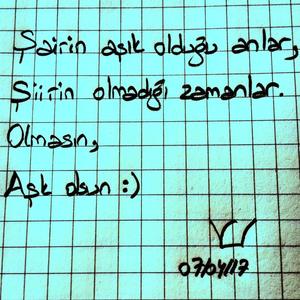 Şairin aşık olduğu anlar,
Şiirin olmadığı zamanlar.
Olmasın,
Aşk olsun :)
07/04/17